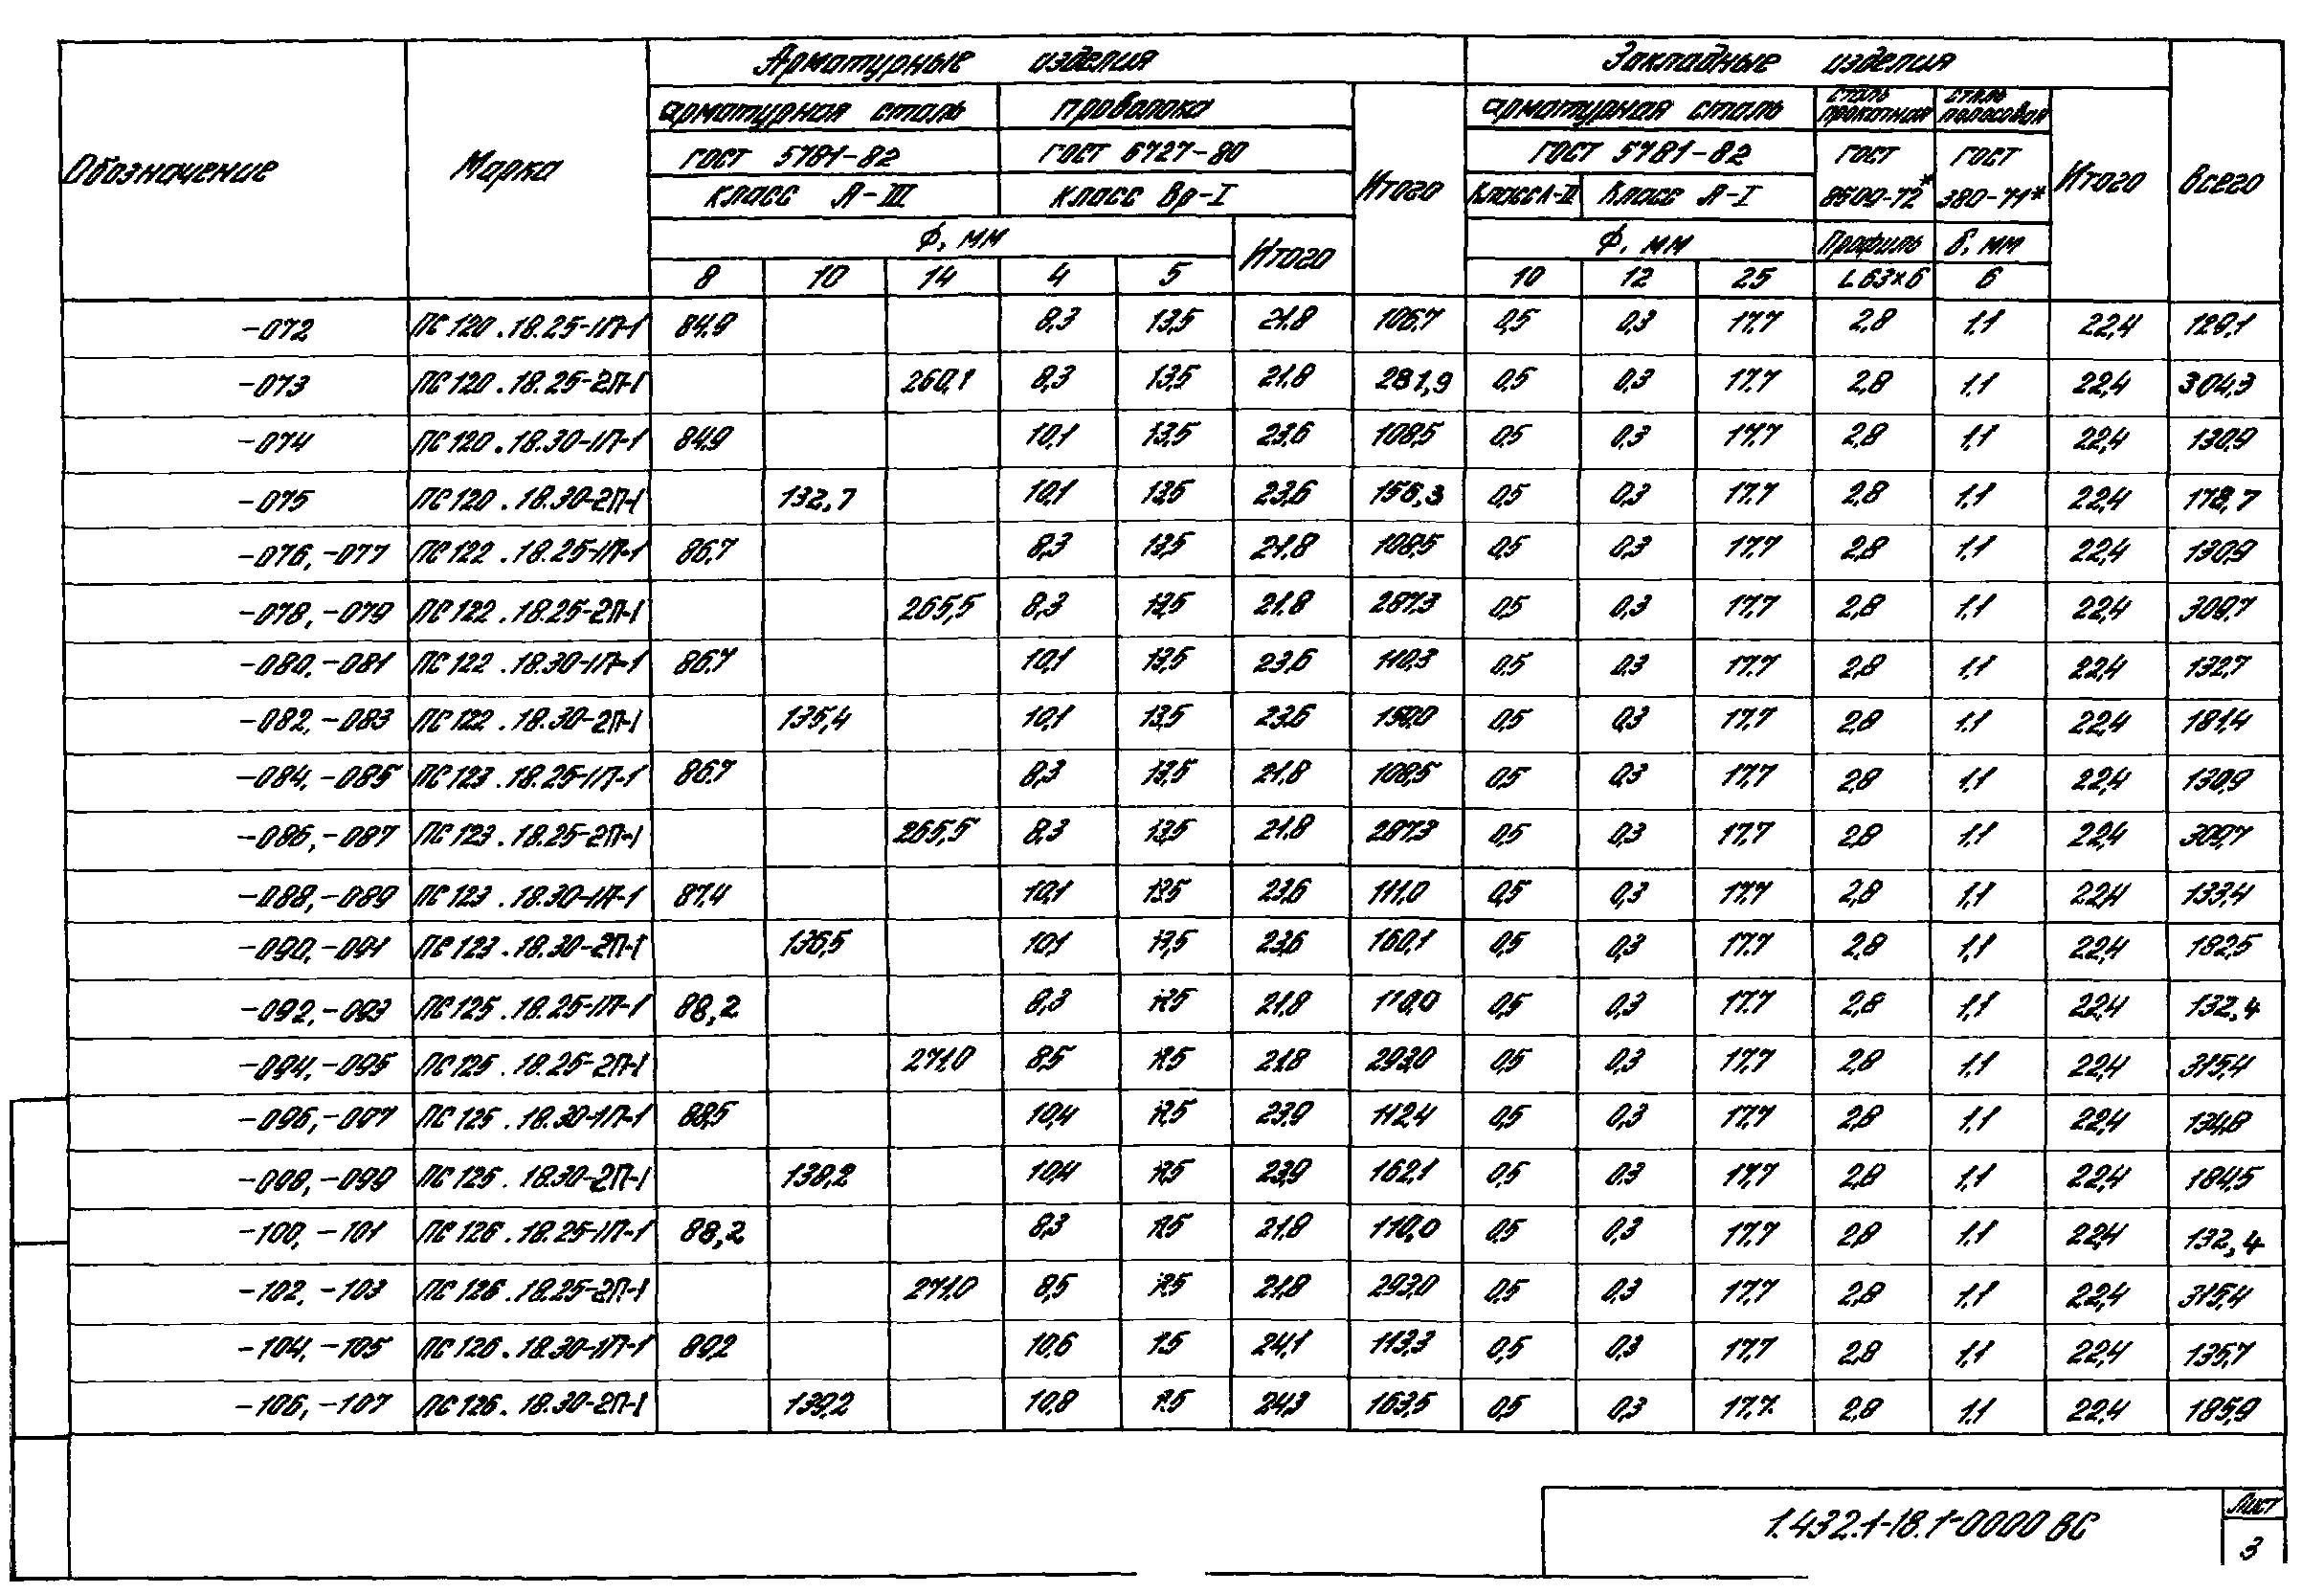 Арматурные изделия Закладные изделия
арматурная сталь проволока арматурная сталь сталь прокатная сталь полосовая
Обозначение Марка ГОСТ 5781-82 ГОСТ 6727-80 Итого ГОСТ 5781-82 ГОСТ 8509-72* ГОСТ 380-71* Итого Всего
класс А-III класс Вр-I Класс А-II Класс А-I
Ф, мм Итого Ф, мм Профиль δ, мм
8 10 14 4 5 10 12 25 L 63×6 6
-072 ПС120.18.25-1П-1 84,9 8,3 13,5 21,8 106,7 0,5 0,3 17,7 2,8 1,1 22,4 129,1
-073 ПС120.18.25-2П-1 260,1 8,3 13,5 21,8 281,9 0,5 0,3 17,7 2,8 1,1 22,4 304,3
-074 ПС120.18.30-1П-1 84,9 10,1 13,5 23,6 108,5 0,5 0,3 17,7 2,8 1,1 22,4 130,9
-075 ПС120.18.30-2П-1 132,7 10,1 13,5 23,6 156,3 0,5 0,3 17,7 2,8 1,1 22,4 178,7
-076,-077 ПС122.18.25-1П-1 86,7 8,3 13,5 21,8 108,5 0,5 0,3 17,7 2,8 1,1 22,4 130,9
-078,-079 ПС122.18.25-2П-1 265,5 8,3 13,5 21,8 287,3 0,5 0,3 17,7 2,8 1,1 22,4 309,7
-080,-081 ПС122.18.30-1П-1 86,7 10,1 13,5 23,6 110,3 0,5 0,3 17,7 2,8 1,1 22,4 132,7
-082,-083 ПС122.18.30-2П-1 135,4 10,1 13,5 23,6 159,0 0,5 0,3 17,7 2,8 1,1 22,4 181,4
-084,-085 ПС123.18.25-1П-1 86,7 8,3 13,5 21,8 108,5 0,5 0,3 17,7 2,8 1,1 22,4 130,9
-086,-087 ПС123.18.25-2П-1 265,5 8,3 13,5 21,8 287,3 0,5 0,3 17,7 2,8 1,1 22,4 309,7
-088,-089 ПС123.18.30-1П-1 87,4 10,1 13,5 23,6 111,0 0,5 0,3 17,7 2,8 1,1 22,4 133,4
-090,-091 ПС123.18.30-2П-1 136,5 10,1 13,5 23,6 160,1 0,5 0,3 17,7 2,8 1,1 22,4 182,5
-092,-093 ПС125.18.25-1П-1 88,2 8,3 13,5 21,8 110,0 0,5 0,3 17,7 2,8 1,1 22,4 132,4
-094,-095 ПС125.18.25-2П-1 271,0 8,5 13,5 21,8 293,0 0,5 0,3 17,7 2,8 1,1 22,4 315,4
-096,-097 ПС125.18.30-1П-1 88,5 10,4 13,5 23,9 112,4 0,5 0,3 17,7 2,8 1,1 22,4 134,8
-098,-099 ПС125.18.30-2П-1 138,2 10,4 13,5 23,9 162,1 0,5 0,3 17,7 2,8 1,1 22,4 184,5
-100,-101 ПС126.18.25-1П-1 88,2 8,3 13,5 21,8 110,0 0,5 0,3 17,7 2,8 1,1 22,4 132,4
-102,-103 ПС126.18.25-2П-1 271,0 8,5 13,5 21,8 293,0 0,5 0,3 17,7 2,8 1,1 22,4 315,4
-104,-105 ПС126.18.30-1П-1 89,2 10,6 24,1 113,3 0,5 0,3 17,7 2,8 1,1 22,4 135,7
-106,-107 ПС126.18.30-2П-1 139,2 10,8 24,3 163,5 0,5 0,3 17,7 2,8 1,1 22,4 185,9
1.432.1-18.1-0000 ВС
Лист
3